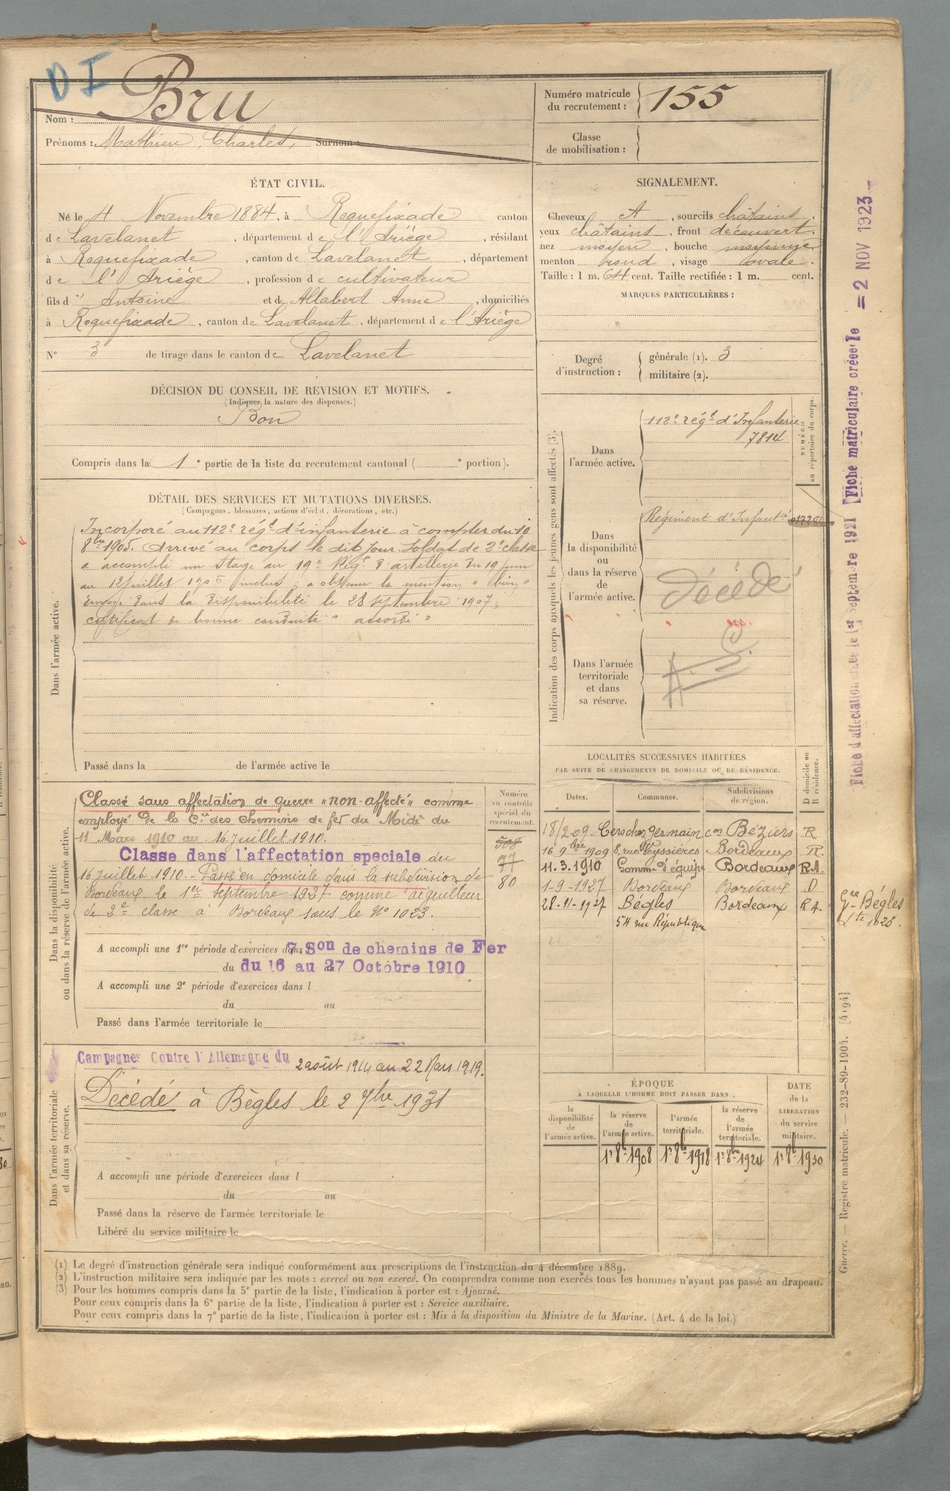 DI
Nom : Bru
Prénoms : Mathieu, Charles, Surnom :
Numéro matricule du recrutement : 155
Classe de mobilisation :
ÉTAT CIVIL.
Né le 4 Novembre 1884, à Roquefixade canton
de Lavelanet, département de l'Ariège, résidant
à Roquefixade, canton de Lavelanet, département
de l'Ariège, profession de cultivateur
fils d' Antoine et de Allabert Anne, domiciliés
à Roquefixade, canton de Lavelanet, département de l'Ariège
N° 3 de tirage dans le canton de Lavelanet
SIGNALEMENT.
Cheveux , sourcils châtains.
yeux châtains, front découvert.
nez moyen, bouche moyenne
menton rond, visage ovale.
Taille : 1 m. 64 cent. Taille rectifiée : 1 m. cent.
MARQUES PARTICULIÈRES :
Degré d'instruction : générale (1). 3
militaire (2).
DÉCISION DU CONSEIL DE REVISION ET MOTIFS.
(Indiquer la nature des dispenses.)
Bon
Compris dans la 1e partie de la liste du recrutement cantonal ( e portion).
DÉTAIL DES SERVICES ET MUTATIONS DIVERSES.
(Campagnes, blessures, actions d'éclat, décorations, etc.)
Dans l'armée active.
Incorporé au 112e rég.t d'infanterie à compter du 10
8bre 1905. Arrivé au corps le dit jour. Soldat de 2e classe
a accompli un stage au 19e Rég.t d'artillerie du 19 juin
au 12 juillet 1906 inclus, a obtenu la mention "bien"
Envoyé dans la disponibilité le 28 septembre 1907,
certificat de bonne conduite "accordé"
Passé dans la de l'armée active le
Indication des corps auxquels les jeunes gens sont affectés (3).
NUMÉRO au répertoire du corps.
Dans l'armée active.
112e rég.t d'Infanterie
7814
Dans la disponibilité ou dans la réserve de l'armée active.
Régiment d'Infant.ie
Décédé
Dans l'armée territoriale et dans sa réserve.
Dans la disponibilité ou dans la réserve de l'armée active.
Classé sans affectation de guerre "non-affecté" comme
employé de la Cie des chemins de fer du Midi du
11 Mars 1910 au 16 juillet 1910.
Classe dans l'affectation speciale du
16 juillet 1910. - Passé en domicile dans la subdivision de
Bordeaux le 1er septembre 1927 comme aiguilleur
de 3e classe à Bordeaux sous le N° 1023.
A accompli une 1re période d'exercices dans 7. Son de chemins de Fer
du 16 au 27 Octobre 1910
A accompli une 2e période d'exercices dans l
du au
Passé dans l'armée territoriale le
Numéro au contrôle spécial du recrutement.
77
80
LOCALITÉS SUCCESSIVES HABITÉES
PAR SUITE DE CHANGEMENTS DE DOMICILE OU DE RÉSIDENCE.
Dates. Communes. Subdivisions de région. D domicile ou R résidence.
18/2 09 Béziers R
16 9bre 1909 Bordeaux R.
11.3.1910 Bordeaux
1-9-1927 Bordeaux Bordeaux D
28-11-1927 Bègles Bordeaux
54 rue République
Gre Bègles
Dans l'armée territoriale et dans sa réserve.
Campagnes Contre l'Allemagne du 2 août 1914 au 22 Mars 1919.
Décédé à Bègles le 2 7bre 1931
A accompli une période d'exercices dans l
du au
Passé dans la réserve de l'armée territoriale le
Libéré du service militaire le
ÉPOQUE
A LAQUELLE L'HOMME DOIT PASSER DANS :
la disponibilité de l'armée active.
la réserve de l'armée active.
l'armée territoriale.
la réserve de l'armée territoriale.
DATE de la LIBÉRATION du service militaire.
1er 8bre 1908 1er 8bre 1918 1er 8bre 1924 1er 8bre 1930
(1) Le degré d'instruction générale sera indiqué conformément aux prescriptions de l'instruction du 4 décembre 1889.
(2) L'instruction militaire sera indiquée par les mots : exercé ou non exercé. On comprendra comme non exercés tous les hommes n'ayant pas passé au drapeau.
(3) Pour les hommes compris dans la 5e partie de la liste, l'indication à porter est : Ajourné.
Pour ceux compris dans la 6e partie de la liste, l'indication à porter est : Service auxiliaire.
Pour ceux compris dans la 7e partie de la liste, l'indication à porter est : Mis à la disposition du Ministre de la Marine. (Art. 4 de la loi.)
Fiche d'affectation créée le 1er Septembre 1921 Fiche matriculaire créée le = 2 NOV 1923 -
Guerre. — Registre matricule. — 232-89-1904. [4194]